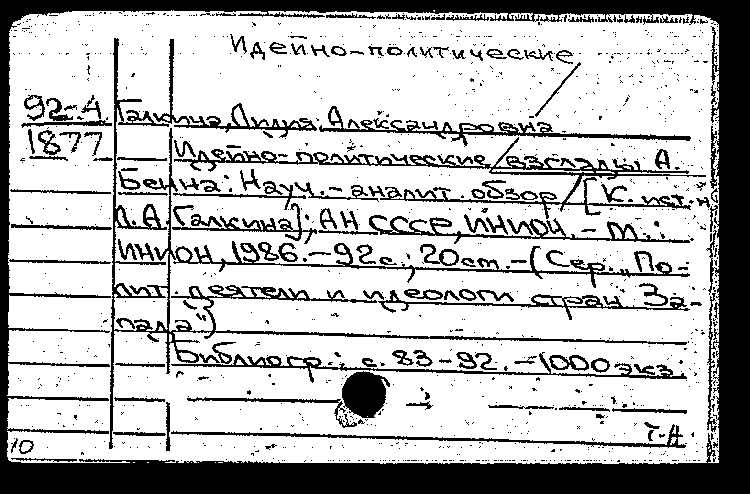 Идейно-политические
92-4 Галкина, Лидия Александровна.
1877
Идейно-политические взгляды А.
Бенна: Науч.-аналит. обзор / [К. ист. н.
Л. А. Галкина]; АН СССР, ИНИОН. - М.:
ИНИОН, 1986. - 92 с.; 20 см. - (Сер. "По-
лит. деятели и идеологи стран За-
пада")
Библиогр.: с. 83-92. - 1000 экз.
10